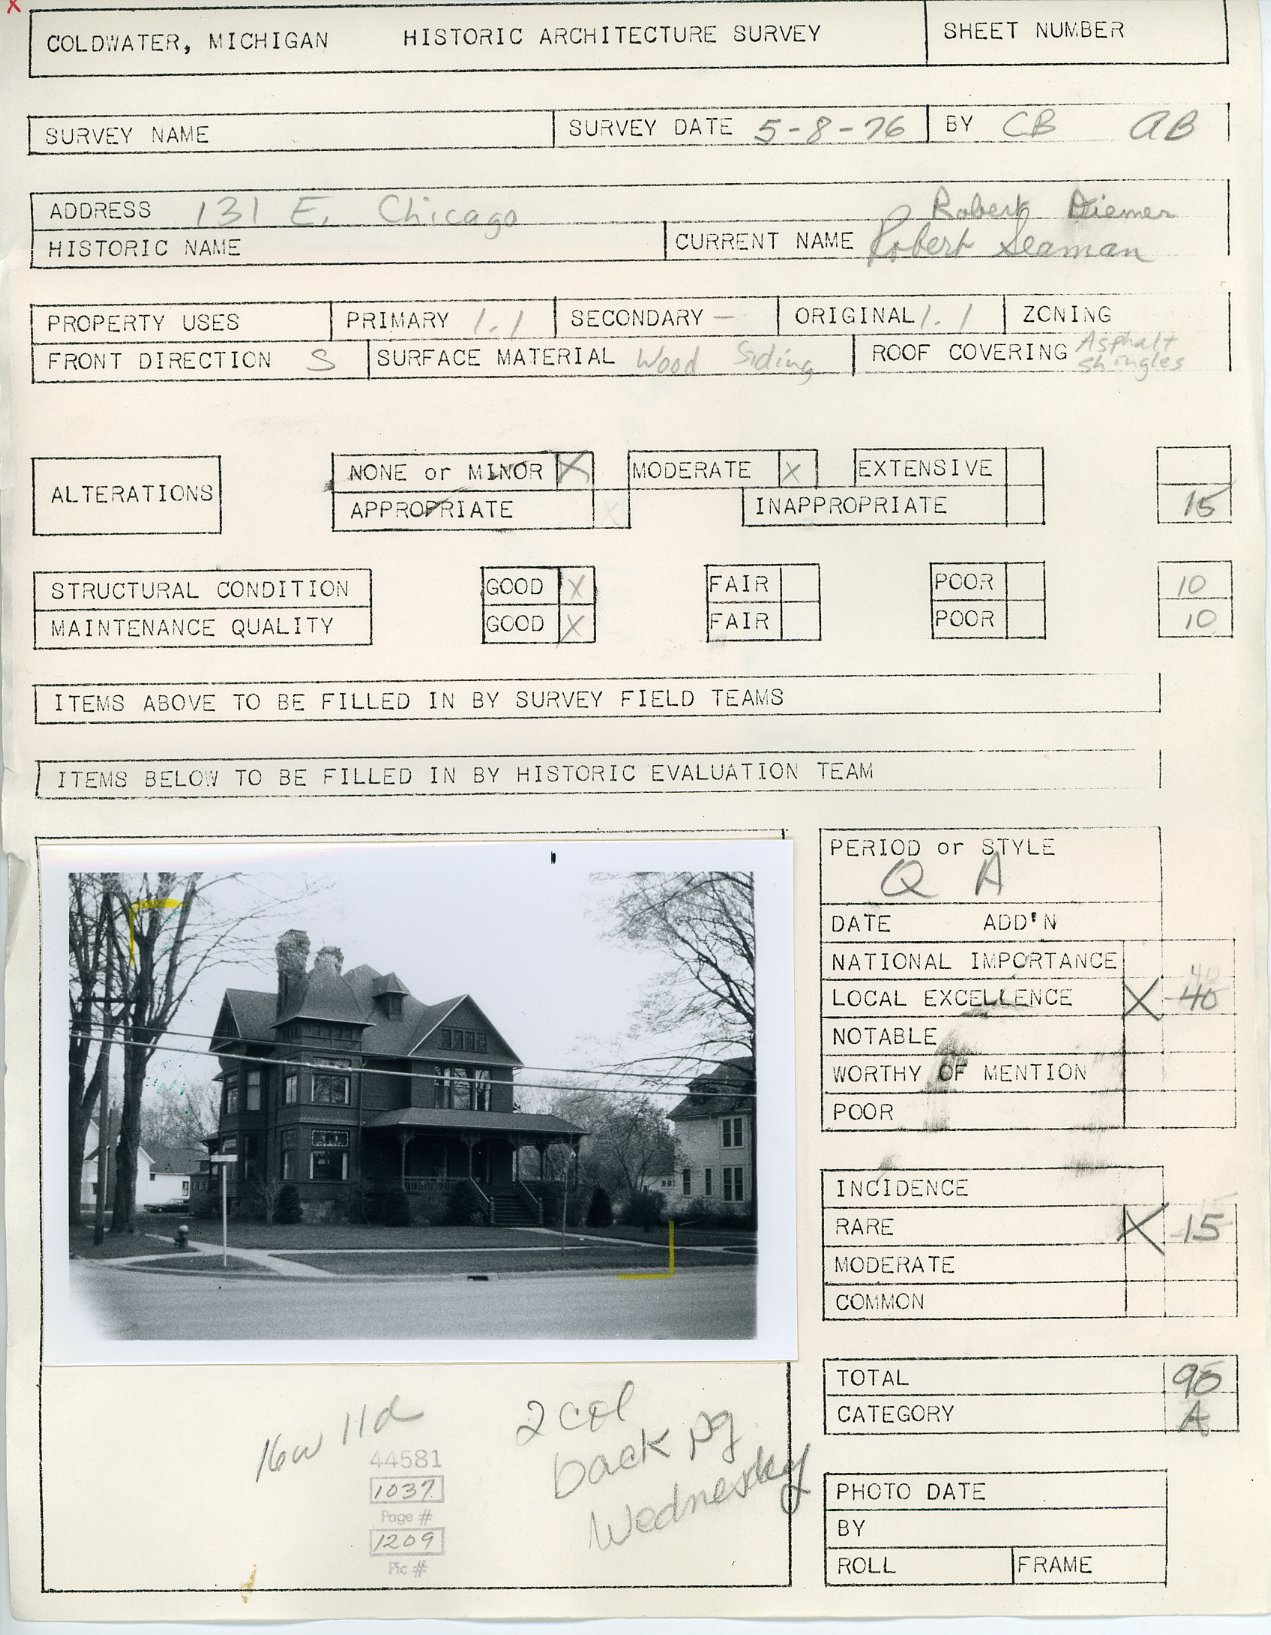 COLDWATER, MICHIGAN HISTORIC ARCHITECTURE SURVEY SHEET NUMBER
SURVEY NAME SURVEY DATE 5-8-76 BY CB AB
ADDRESS 131 E. Chicago Robert Diemer
HISTORIC NAME CURRENT NAME Robert Seaman
PROPERTY USES PRIMARY 1.1 SECONDARY – ORIGINAL 1.1 ZONING
FRONT DIRECTION S SURFACE MATERIAL Wood Siding ROOF COVERING Asphalt Shingles
ALTERATIONS
NONE or MINOR X MODERATE X EXTENSIVE
APPROPRIATE X INAPPROPRIATE 15
STRUCTURAL CONDITION GOOD X FAIR POOR 10
MAINTENANCE QUALITY GOOD X FAIR POOR 10
ITEMS ABOVE TO BE FILLED IN BY SURVEY FIELD TEAMS
ITEMS BELOW TO BE FILLED IN BY HISTORIC EVALUATION TEAM
PERIOD or STYLE
Q A
DATE ADD'N
NATIONAL IMPORTANCE 40
LOCAL EXCELLENCE X 40
NOTABLE
WORTHY OF MENTION
POOR
INCIDENCE
RARE X 15
MODERATE
COMMON
TOTAL 90
CATEGORY A
PHOTO DATE
BY
ROLL FRAME
16w 11d
44581
1037
Page #
1209
Pic #
2 col
back pg
Wednesday